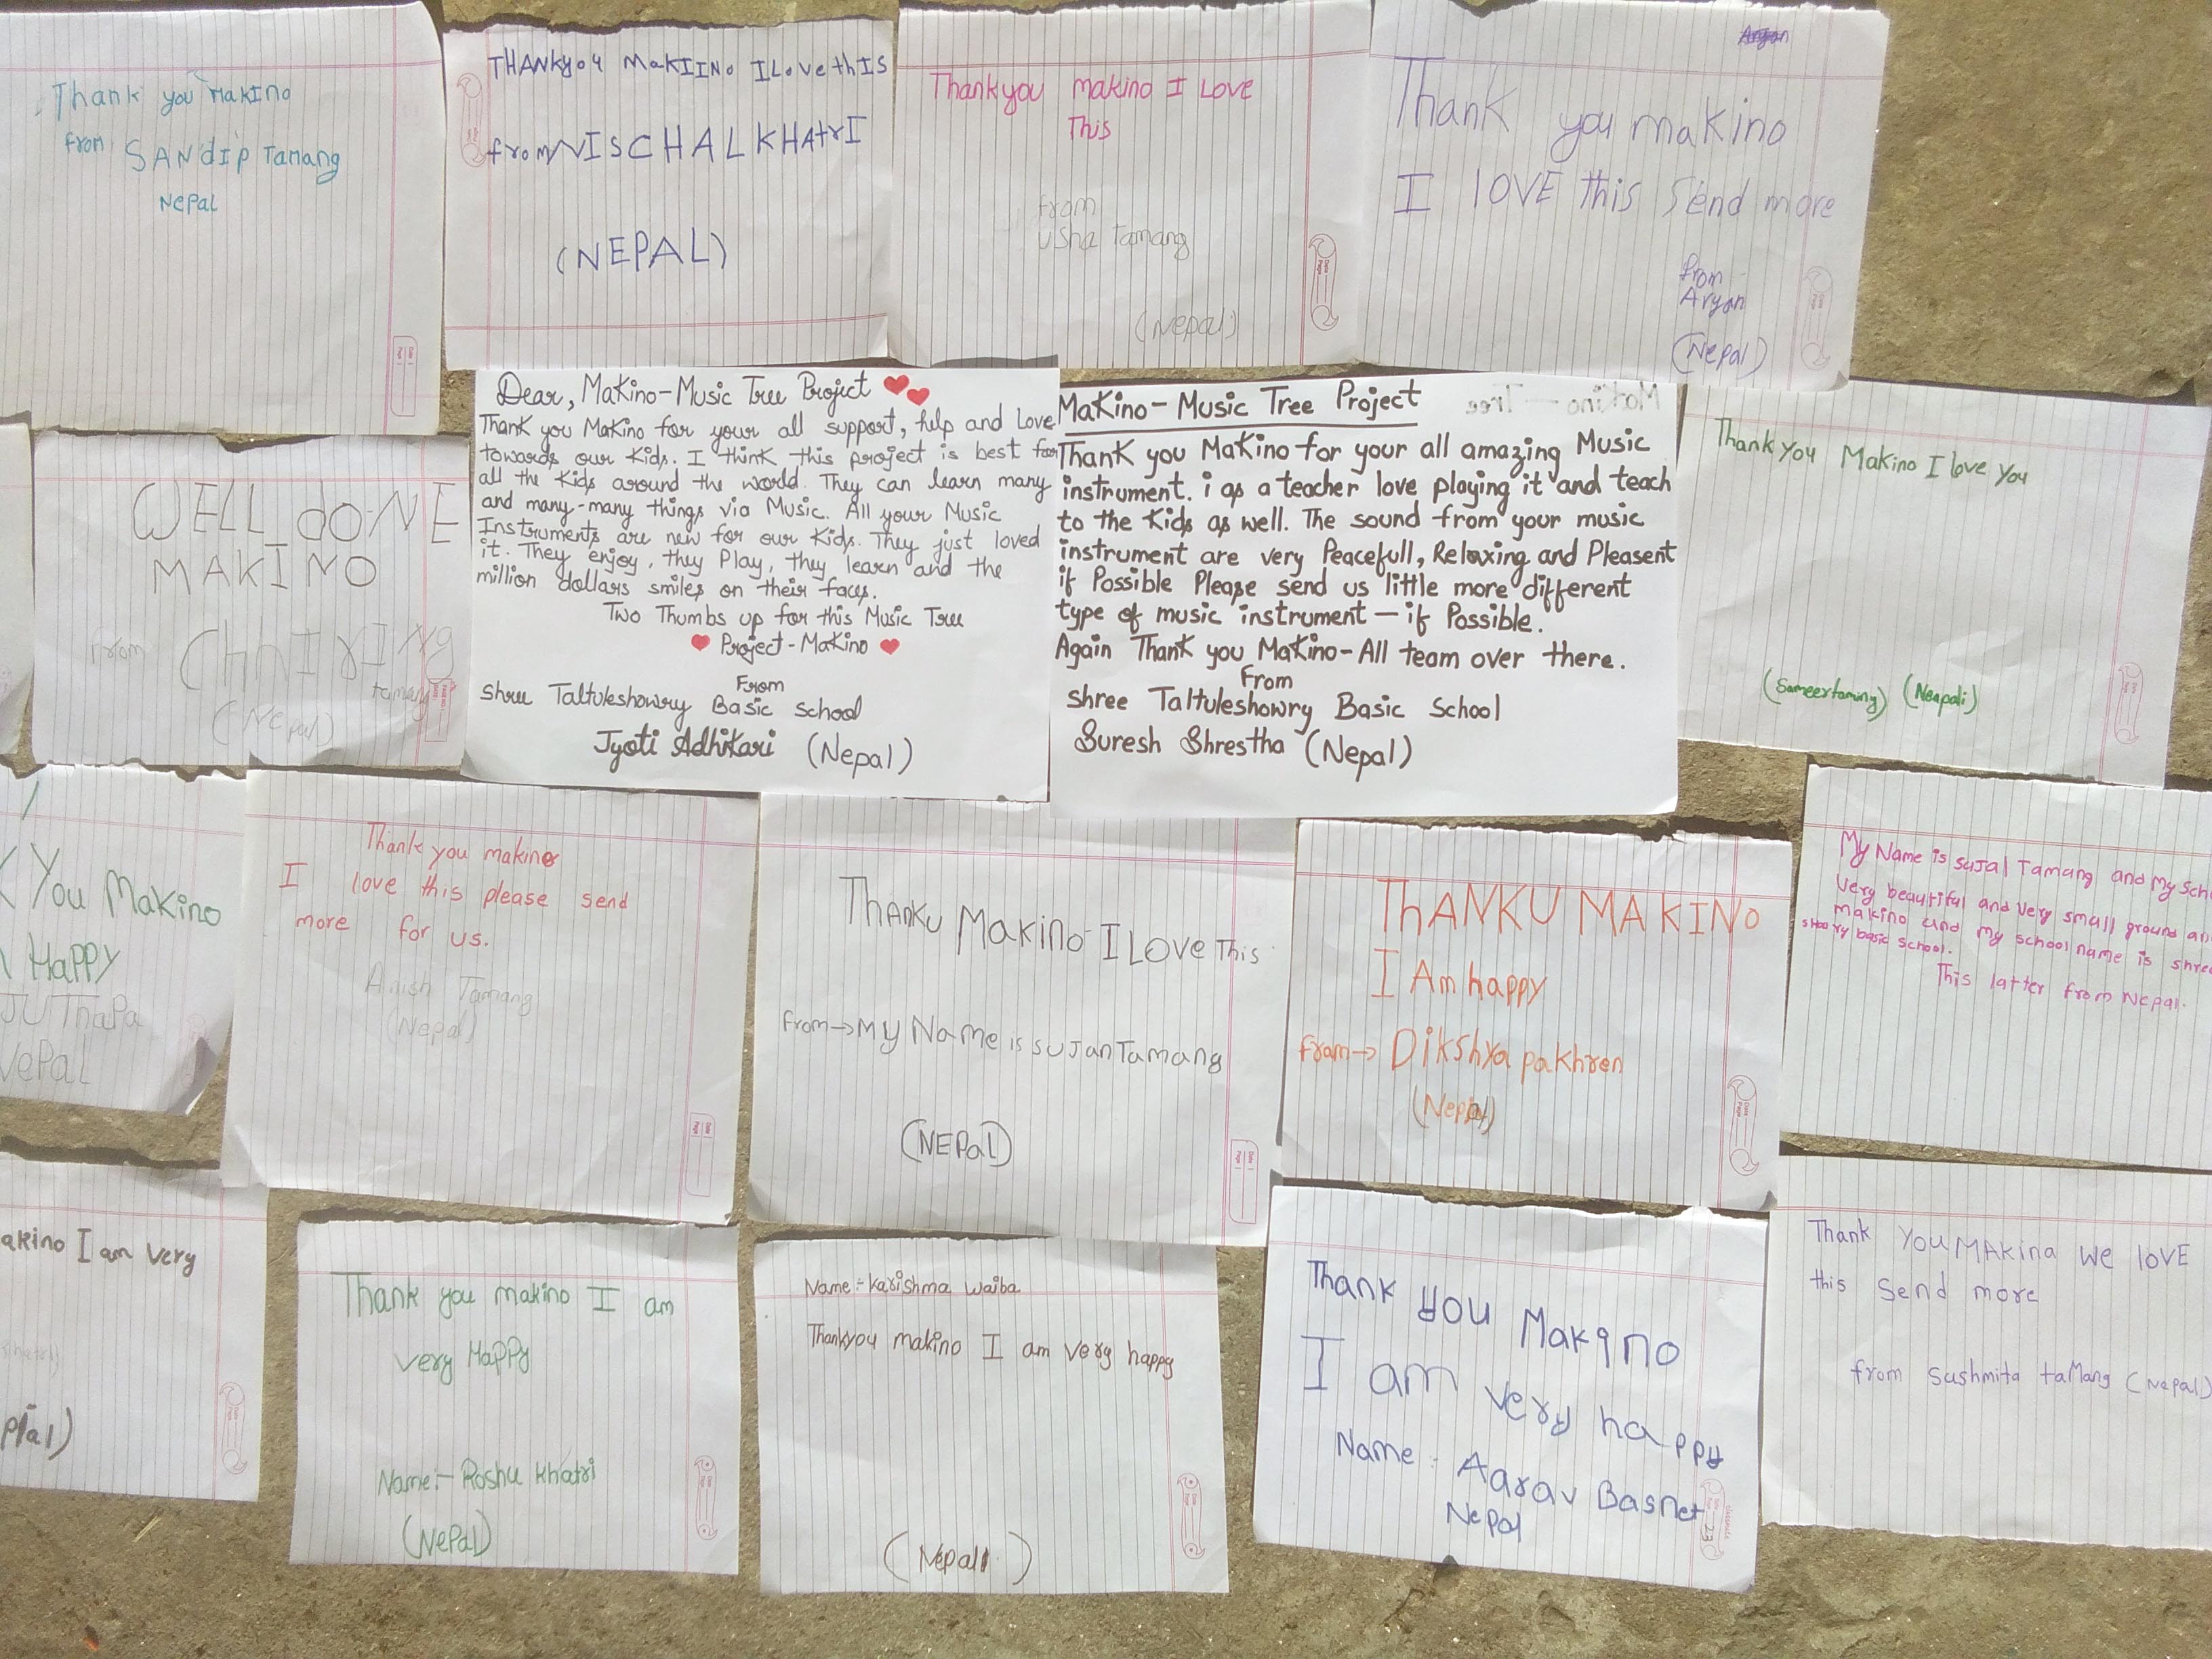 Thank you Makino
from SANdip Tamang
Nepal
THANKyou MaKIINo ILove thIS
from NISCHAL KHAtrI
(NEPAL)
Thankyou makino I Love
This
from
Usha Tamang
(Nepal)
Aryan
Thank you makino
I lOVE this Send more
from
Aryan
(Nepal)
WELL doNE
MAKINO
from
tamang
(Nepal)
Dear, Makino-Music Tree Project
Thank you Makino for your all support, help and Love
towards our Kids. I think this project is best for
all the Kids around the world. They can learn many
and many-many things via Music. All your Music
Instruments are new for our Kids. They just loved
it. They enjoy, they Play, they learn and the
million dollars smiles on their faces.
Two Thumbs up for this Music Tree
Project - Makino
From
Shree Taltuleshowry Basic School
Jyoti Adhikari (Nepal)
Makino - Music Tree Project
Thank you Makino for your all amazing Music
instrument. i as a teacher love playing it and teach
to the Kids as well. The sound from your music
instrument are very Peacefull, Relaxing and Pleasent
if Possible Please send us little more different
type of music instrument — if Possible.
Again Thank you Makino-All team over there.
From
Shree Taltuleshowry Basic School
Suresh Shrestha (Nepal)
Thank you Makino I love you
(Sameertaming) (Neapali)
You Makino
Happy
JU ThaPa
NePal
Thank you makino
I love this please send
more for us.
Anish Tamang
(Nepal)
ThANKU Makino I LOVE This
from→ My Name is sujan Tamang
(NEPal)
ThANKU MAKINO
I Am happy
from→ Dikshya pakhren
(Nepal)
My Name is sujal Tamang and My Sch
very beautiful and very small ground an
makino and my school name is shree
showry basic school.
This latter from Nepal.
akino I am very
pal)
Thank you makino I am
very HaPPy
Name:- Roshu khatri
(NePal)
Name:- Karishma waiba
Thankyou makino I am very happy
(Nepal)
Thank you Makino
I am very happy
Name: Aarav Basnet
Nepal
Thank YOU MAKina we lOVE
this Send more
from Sushmita taMang (Nepal)